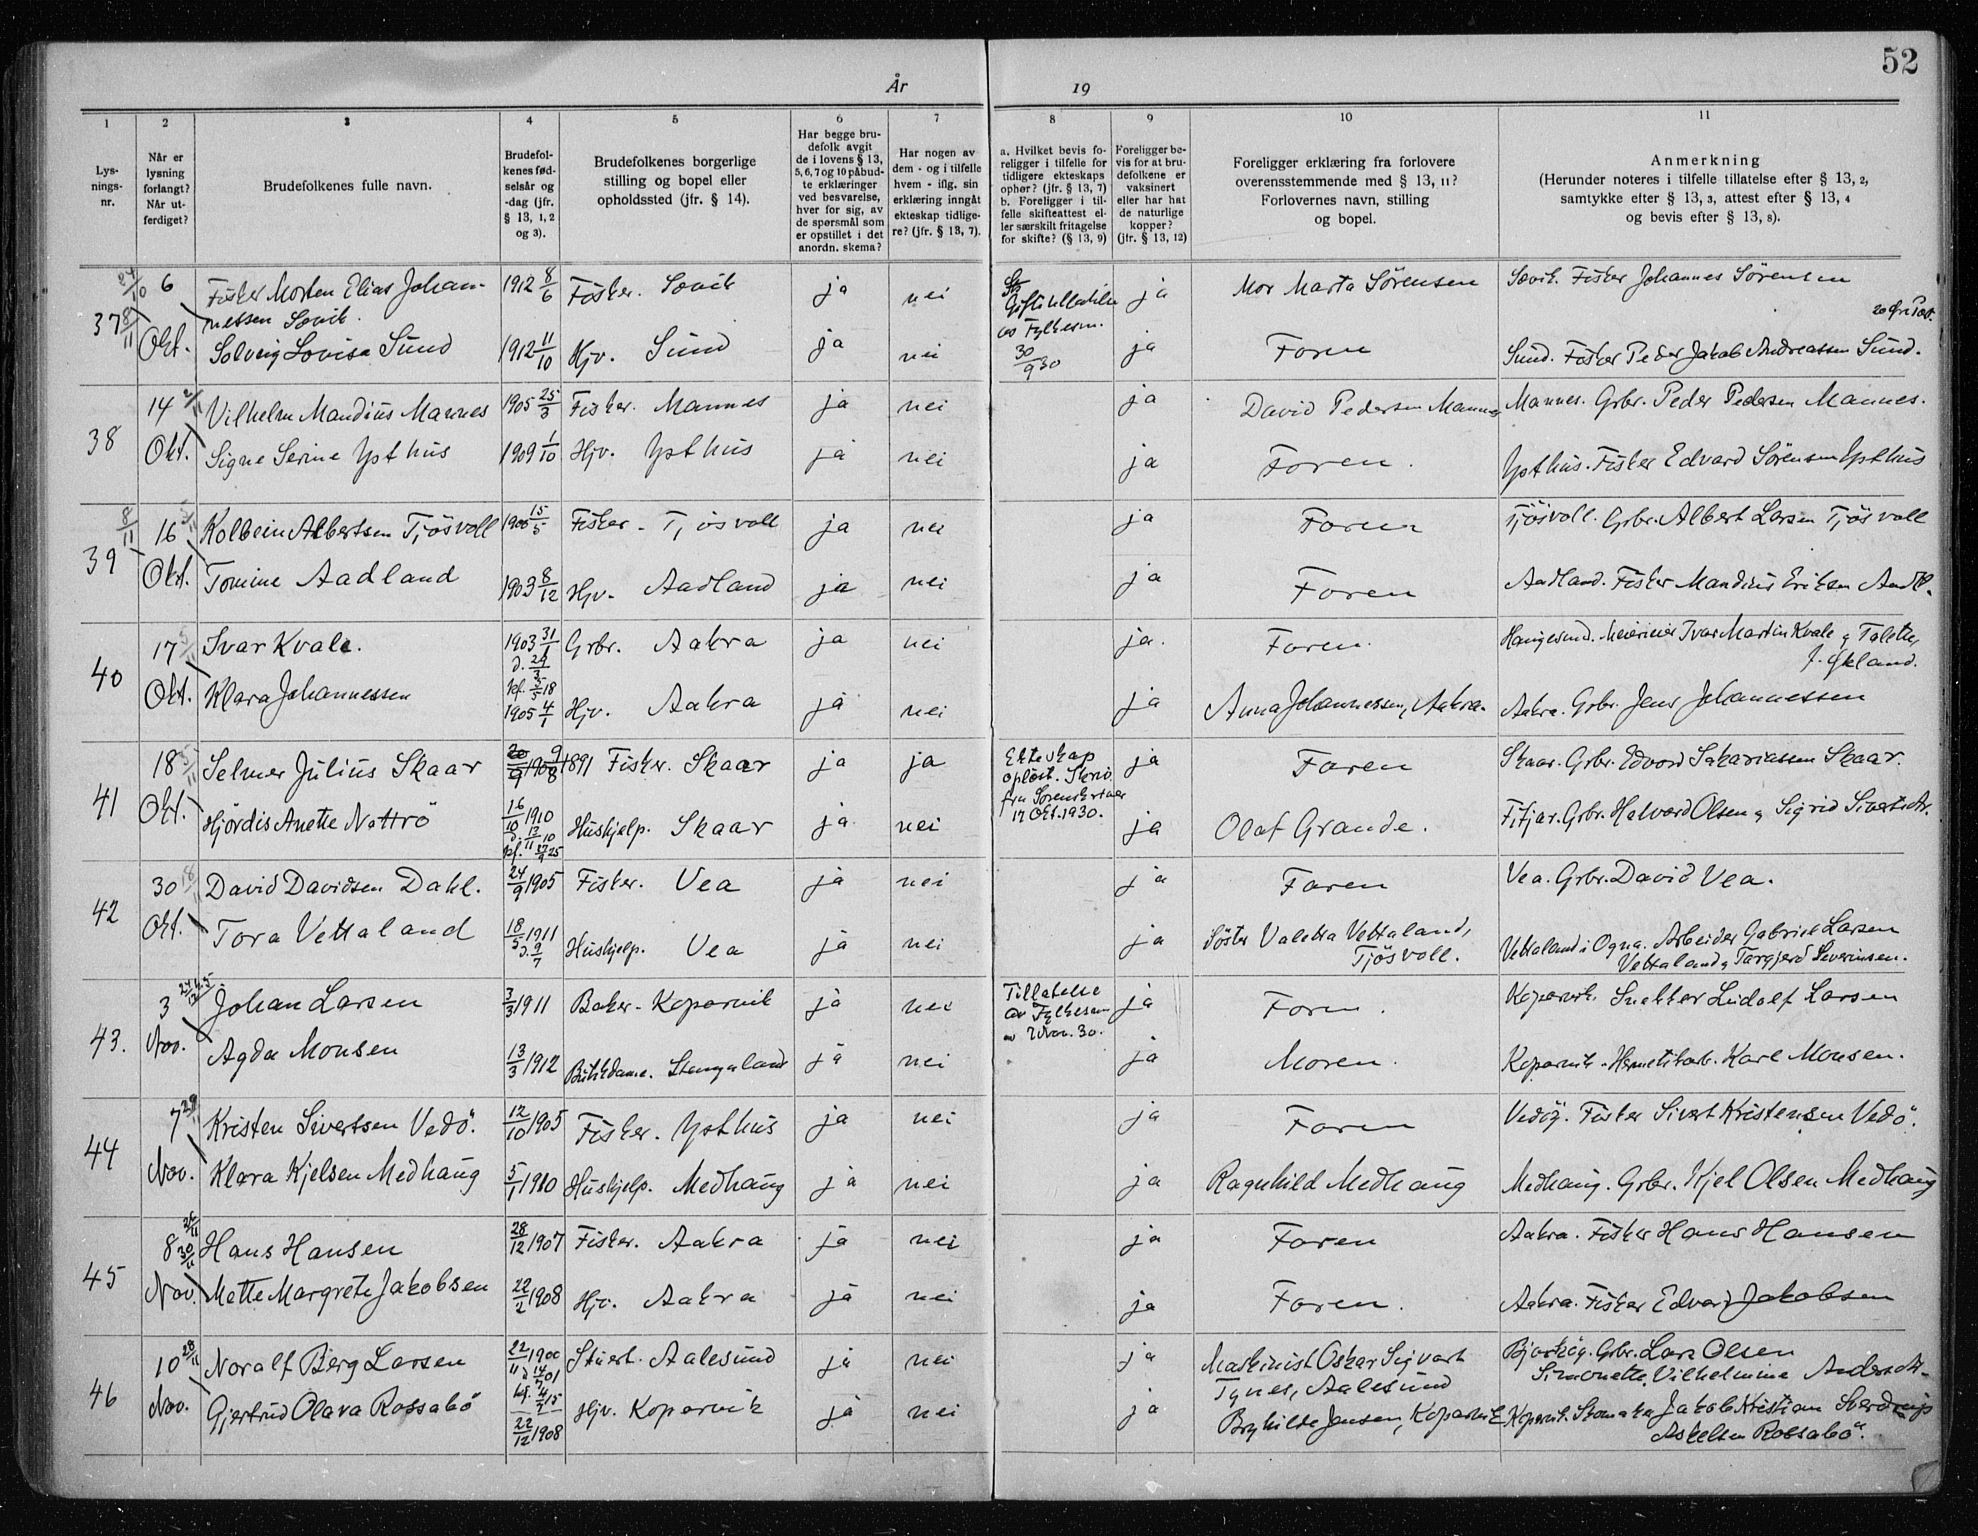 52
År 19
1 2 3 4 5 6 7 8 9 10 11
Lys-
nings-
nr.
Når er
lysning
forlangt?
Når ut-
ferdiget?
Brudefolkenes fulle navn.
Brudefol-
kenes fød-
selsår og
-dag (jfr.
§ 13, 1, 2
og 3).
Brudefolkenes borgerlige
stilling og bopel eller
opholdssted (jfr. § 14).
Har begge bru-
defolk avgit
de i lovens § 13,
5, 6, 7 og 10 påbud-
te erklæringer
ved besvarelse,
hver for sig, av
de spørsmål som
er opstillet i det
anordn. skema?
Har nogen av
dem - og i tilfelle
hvem - iflg. sin
erklæring inngåt
ekteskap tidlige-
re? (jfr. § 13, 7).
a. Hvilket bevis fo-
religger i tilfelle for
tidligere ekteskaps
ophør? (jfr. § 13, 7)
b. Foreligger i til-
felle skifteattest el-
ler særskilt fritagelse
for skifte? (§ 13, 9)
Foreligger be-
vis for at bru-
defolkene er
vaksinert
eller har hat
de naturlige
kopper?
(jfr. § 13, 12)
Foreligger erklæring fra forlovere
overensstemmende med § 13, 11?
Forlovernes navn, stilling
og bopel.
Anmerkning
(Herunder noteres i tilfelle tillatelse efter § 13, 2,
samtykke efter § 13, 3, attest efter § 13, 4
og bevis efter § 13, 8).
37 24/10 8/11 6 Fisker Morten Elias Johan- 1912 8/6 Fisker. Sævik ja nei Giftetillatelse ja Mor Marta Sörensen Sævik. Fisker Johannes Sörensen
nessen Sævik. av Fylkesm.
Okt. Solveig Lovise Sund 1912 11/10 Hjv. Sund ja nei 30/9 30 ja Faren Sund. Fisker Peder Jakob Andreassen Sund.
38 14 2/11 Vilhelm Mandius Mannes 1905 25/3 Fisker. Mannes ja nei ja David Pedersen Mannes Mannes. Grbr. Peder Pedersen Mannes.
Okt. Signe Serine Ysthus 1909 1/10 Hjv. Ysthus ja nei ja Faren. Ysthus. Fisker Edvard Sörensen Ysthus
39 8/11 16 Kolbein Albertsen Tjösvoll 1906 15/5 Fisker - Tjösvoll ja nei ja Faren Tjösvoll. Grbr. Albert Larsen Tjösvoll
Okt. Tomine Aadland 1903 8/12 Hjv. Aadland ja nei ja Faren Aadland. Fisker Mandius Eriksen Aadl.
40 17 5/11 Ivar Kvale. 1903 31/1 Grbr. Aakra ja nei ja. Faren. Haugesund. Meierieier Ivar Martin Kvale g Talette
d. 24/3 J. Økland.
kf. 5/5 18
Okt. Klara Johannessen 1905 4/1 Hjv. Aakra ja nei ja Anna Johannessen, Aakra. Aakra. Grbr. Jens Johannessen
41 18 5/11 Selmer Julius Skaar 20/9 190 9/8 1891 Fisker. Skaar ja ja Ekteskap ja Faren Skaar. Grbr. Edvard Sakariassen Skaar.
opløst. Skriv.
fra Sorenskriver
17 Okt. 1930.
Okt. Hjördis Anette Nattrö 16/10 1910 Huskjelp. Skaar ja nei ja Olaf Grande. Fitjar. Grbr. Halvard Olsen g Sigrid Sivertsdtr.
d. 13/11 10
kf. 27/9 25
42 30 18/11 David Davidsen Dahl. 24/9 1905 Fisker. Vea ja nei ja Faren Vea. Grbr. David Vea.
Okt. Tora Vettaland 18/5 1911 Huskjelp. Vea ja nei ja Söster Valetta Vettaland, Vettaland i Ogna. Arbeider Gabriel Larsen
d. 9/7 Tjösvoll. Vettaland g Targjerd Severinsen.
43. 3 Johan Larsen 3/3 1911 Baker - Kopervik ja nei Tillatelse ja Faren. Kopervik. Snekker Ludolf Larsen
av Fylkesm
Nov. Agda Monsen 13/3 1912 Butikkdame. Stangeland ja nei ja Moren. Kopervik - Hermetikarb. Karl Monsen.
44 7 29 Kristen Sivertsen Vedö. 12/10 1905 Fisker. Ysthus ja nei ja Faren Vedöy. Fisker Sivert Kristensen Vedö.
Nov. Klara Kjelsen Medhaug 5/1 1910 Huskjelp. Medhaug ja nei ja Ragnhild Medhaug Medhaug. Grbr. Kjel Olsen Medhaug
45 8 26/11 30/11 Hans Hansen 28/12 1907 Fisker. Aakra ja nei ja Faren Aakra. Fisker Hans Hansen
Nov. Mette Margrete Jakobsen 22/2 1908 Hjv. Aakra ja nei ja Faren. Aakra. Fisker Edvard Jakobsen
46 10 28/11 Noralf Berg Larsen 22/11 1900 Stuert. Aalesund ja nei ja Maskinist Oskar Sigvart Grbr. Lars Olsen
d. 14/ 01 Tynes, Aalesund Simonette Vilhelmine Andersdtr.
Nov. Gjertrud Olava Rossabö 22/12 1908 Hjv. Kopervik ja nei ja Brynhilde Jensen, Kopervik Kopervik. Skomaker Jakob Kristian Sverdrup
Askelsen Rossabö.